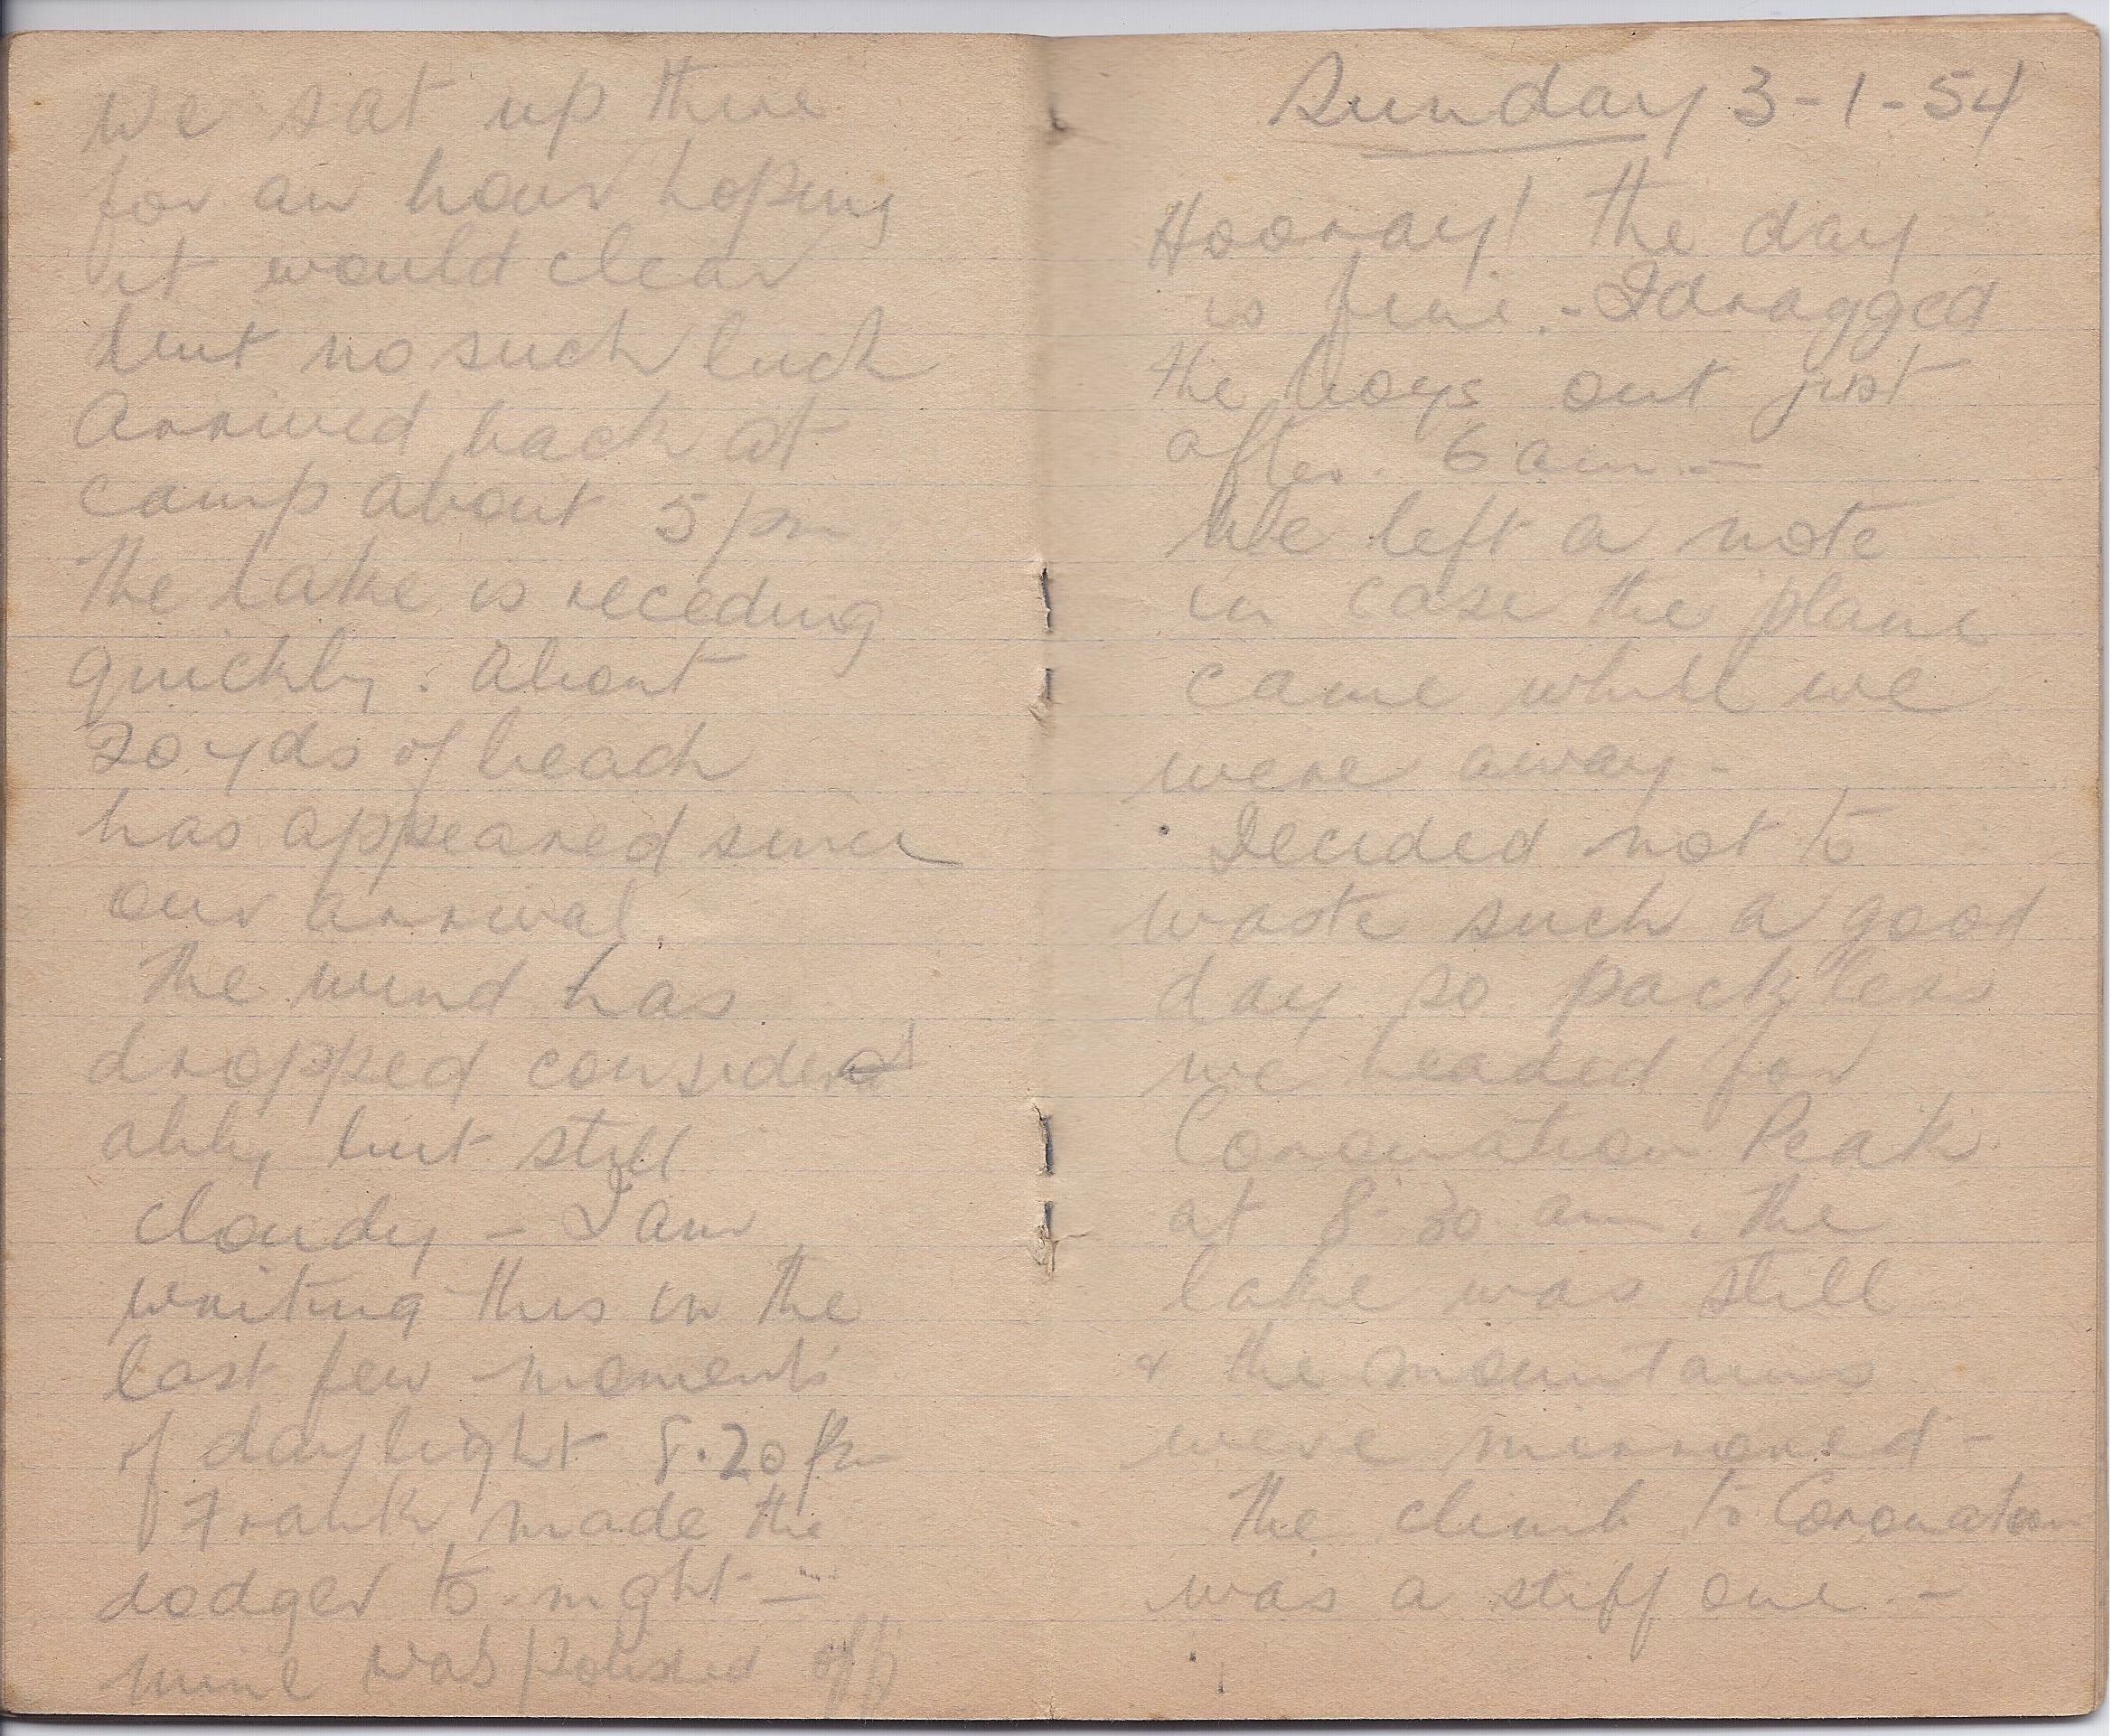 We sat up there
for an hour hoping
it would clear
but no such luck
Arrived back at
camp about 5 pm
The lake is receding
quickly. About
20 yds of beach
has appeared since
our arrival.
The wind has
dropped consider
ably but still
cloudy - I am
writing this in the
last few moments
of daylight 8.20 pm
Frank made the
dodger to-night -
mine was polished off
Sunday 3-1-54
Hooray! The day
is fine. - I dragged
the boys out just
after 6 am -
We left a note
in case the plane
came while we
were away -
Decided not to
waste such a good
day so packless
we headed for
Coronation Peak
at 8.30 am. The
lake was still
& the mountains
were mirrored -
The climb to Coronation
was a stiff one. -